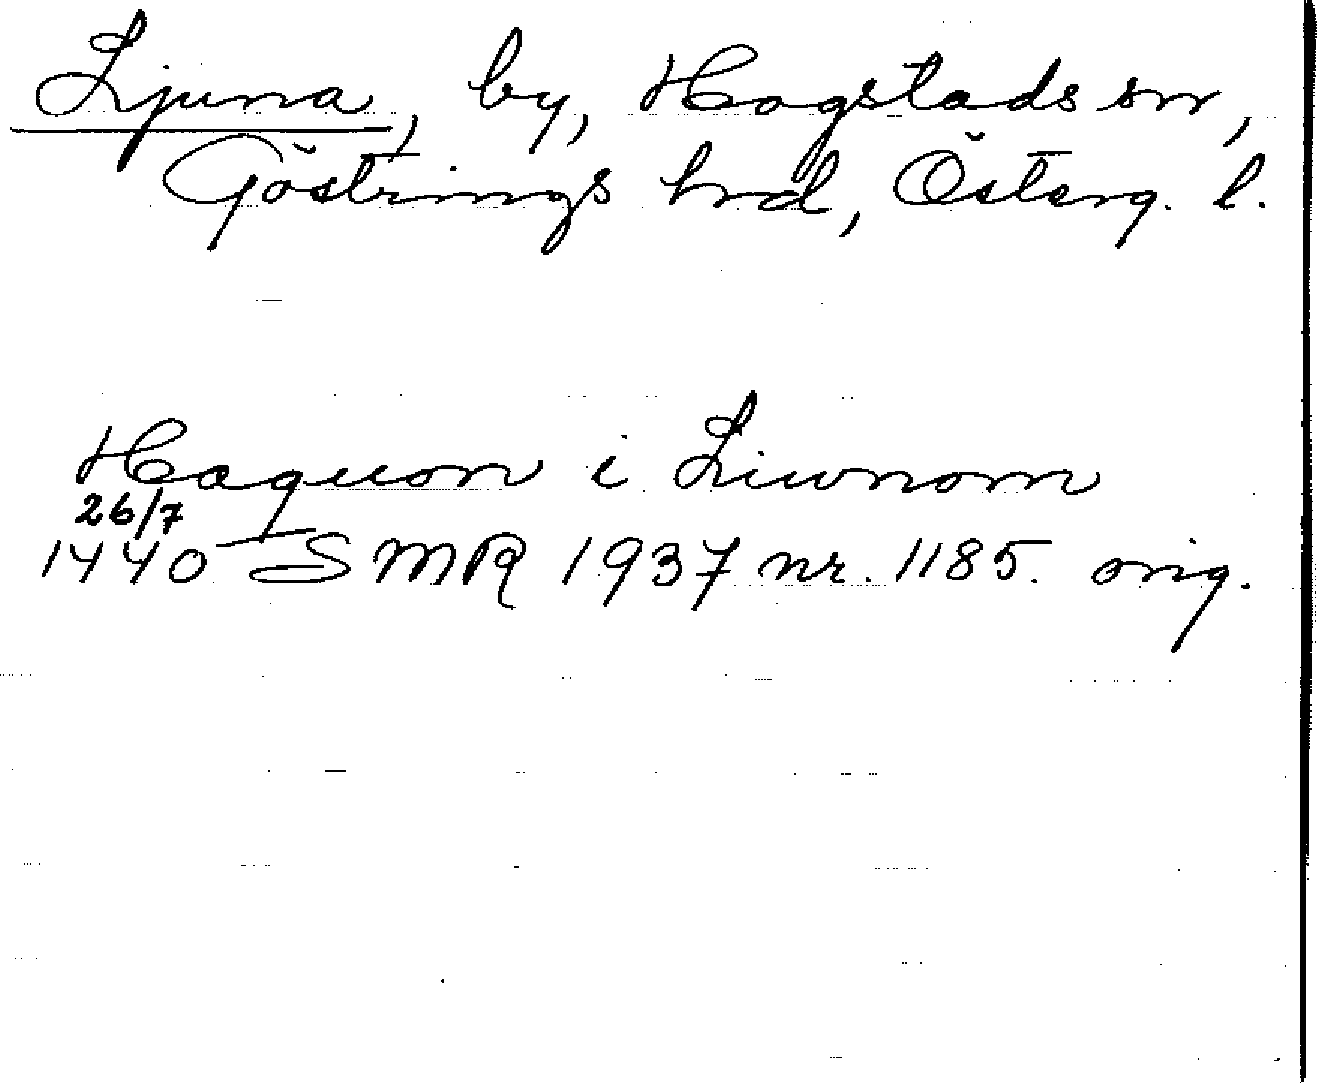 Ljuna, by, Hogstads sn,
Göstrings hrd, Österg. l.
Haquon i Liwnom
26/7
1440 SMR 1937 nr. 1185. orig.